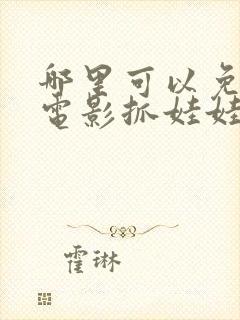 哪里可以免
電影抓娃娃
霍琳